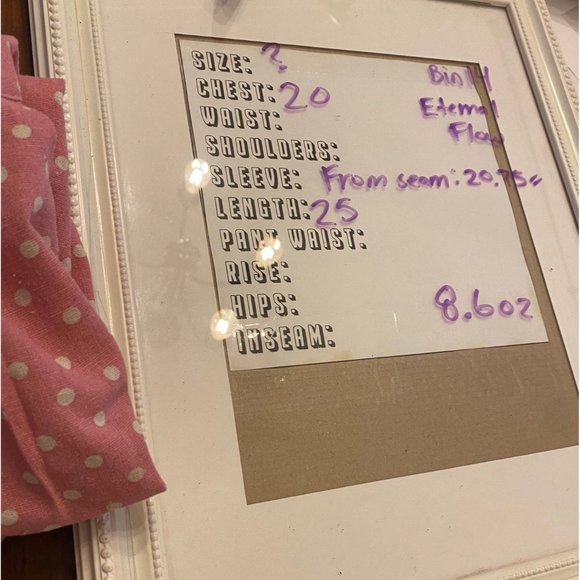 SIZE: ? Bin 14
CHEST: 20 Eternal
WAIST: Flaw
SHOULDERS:
SLEEVE: From seam: 20.75
LENGTH: 25
PANT WAIST:
RISE:
HIPS: 8.6oz
INSEAM: